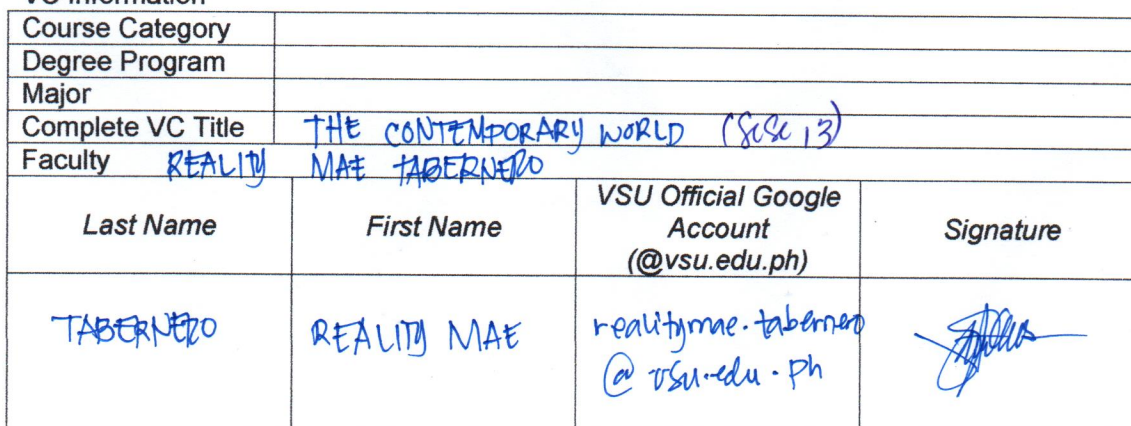 VC Information
Course Category
Degree Program
Major
Complete VC Title THE CONTEMPORARY WORLD (ScSc 13)
Faculty REALITY MAE TABERNERO
Last Name First Name VSU Official Google Account (@vsu.edu.ph) Signature
TABERNERO REALITY MAE realitymae.tabernero
@vsu.edu.ph